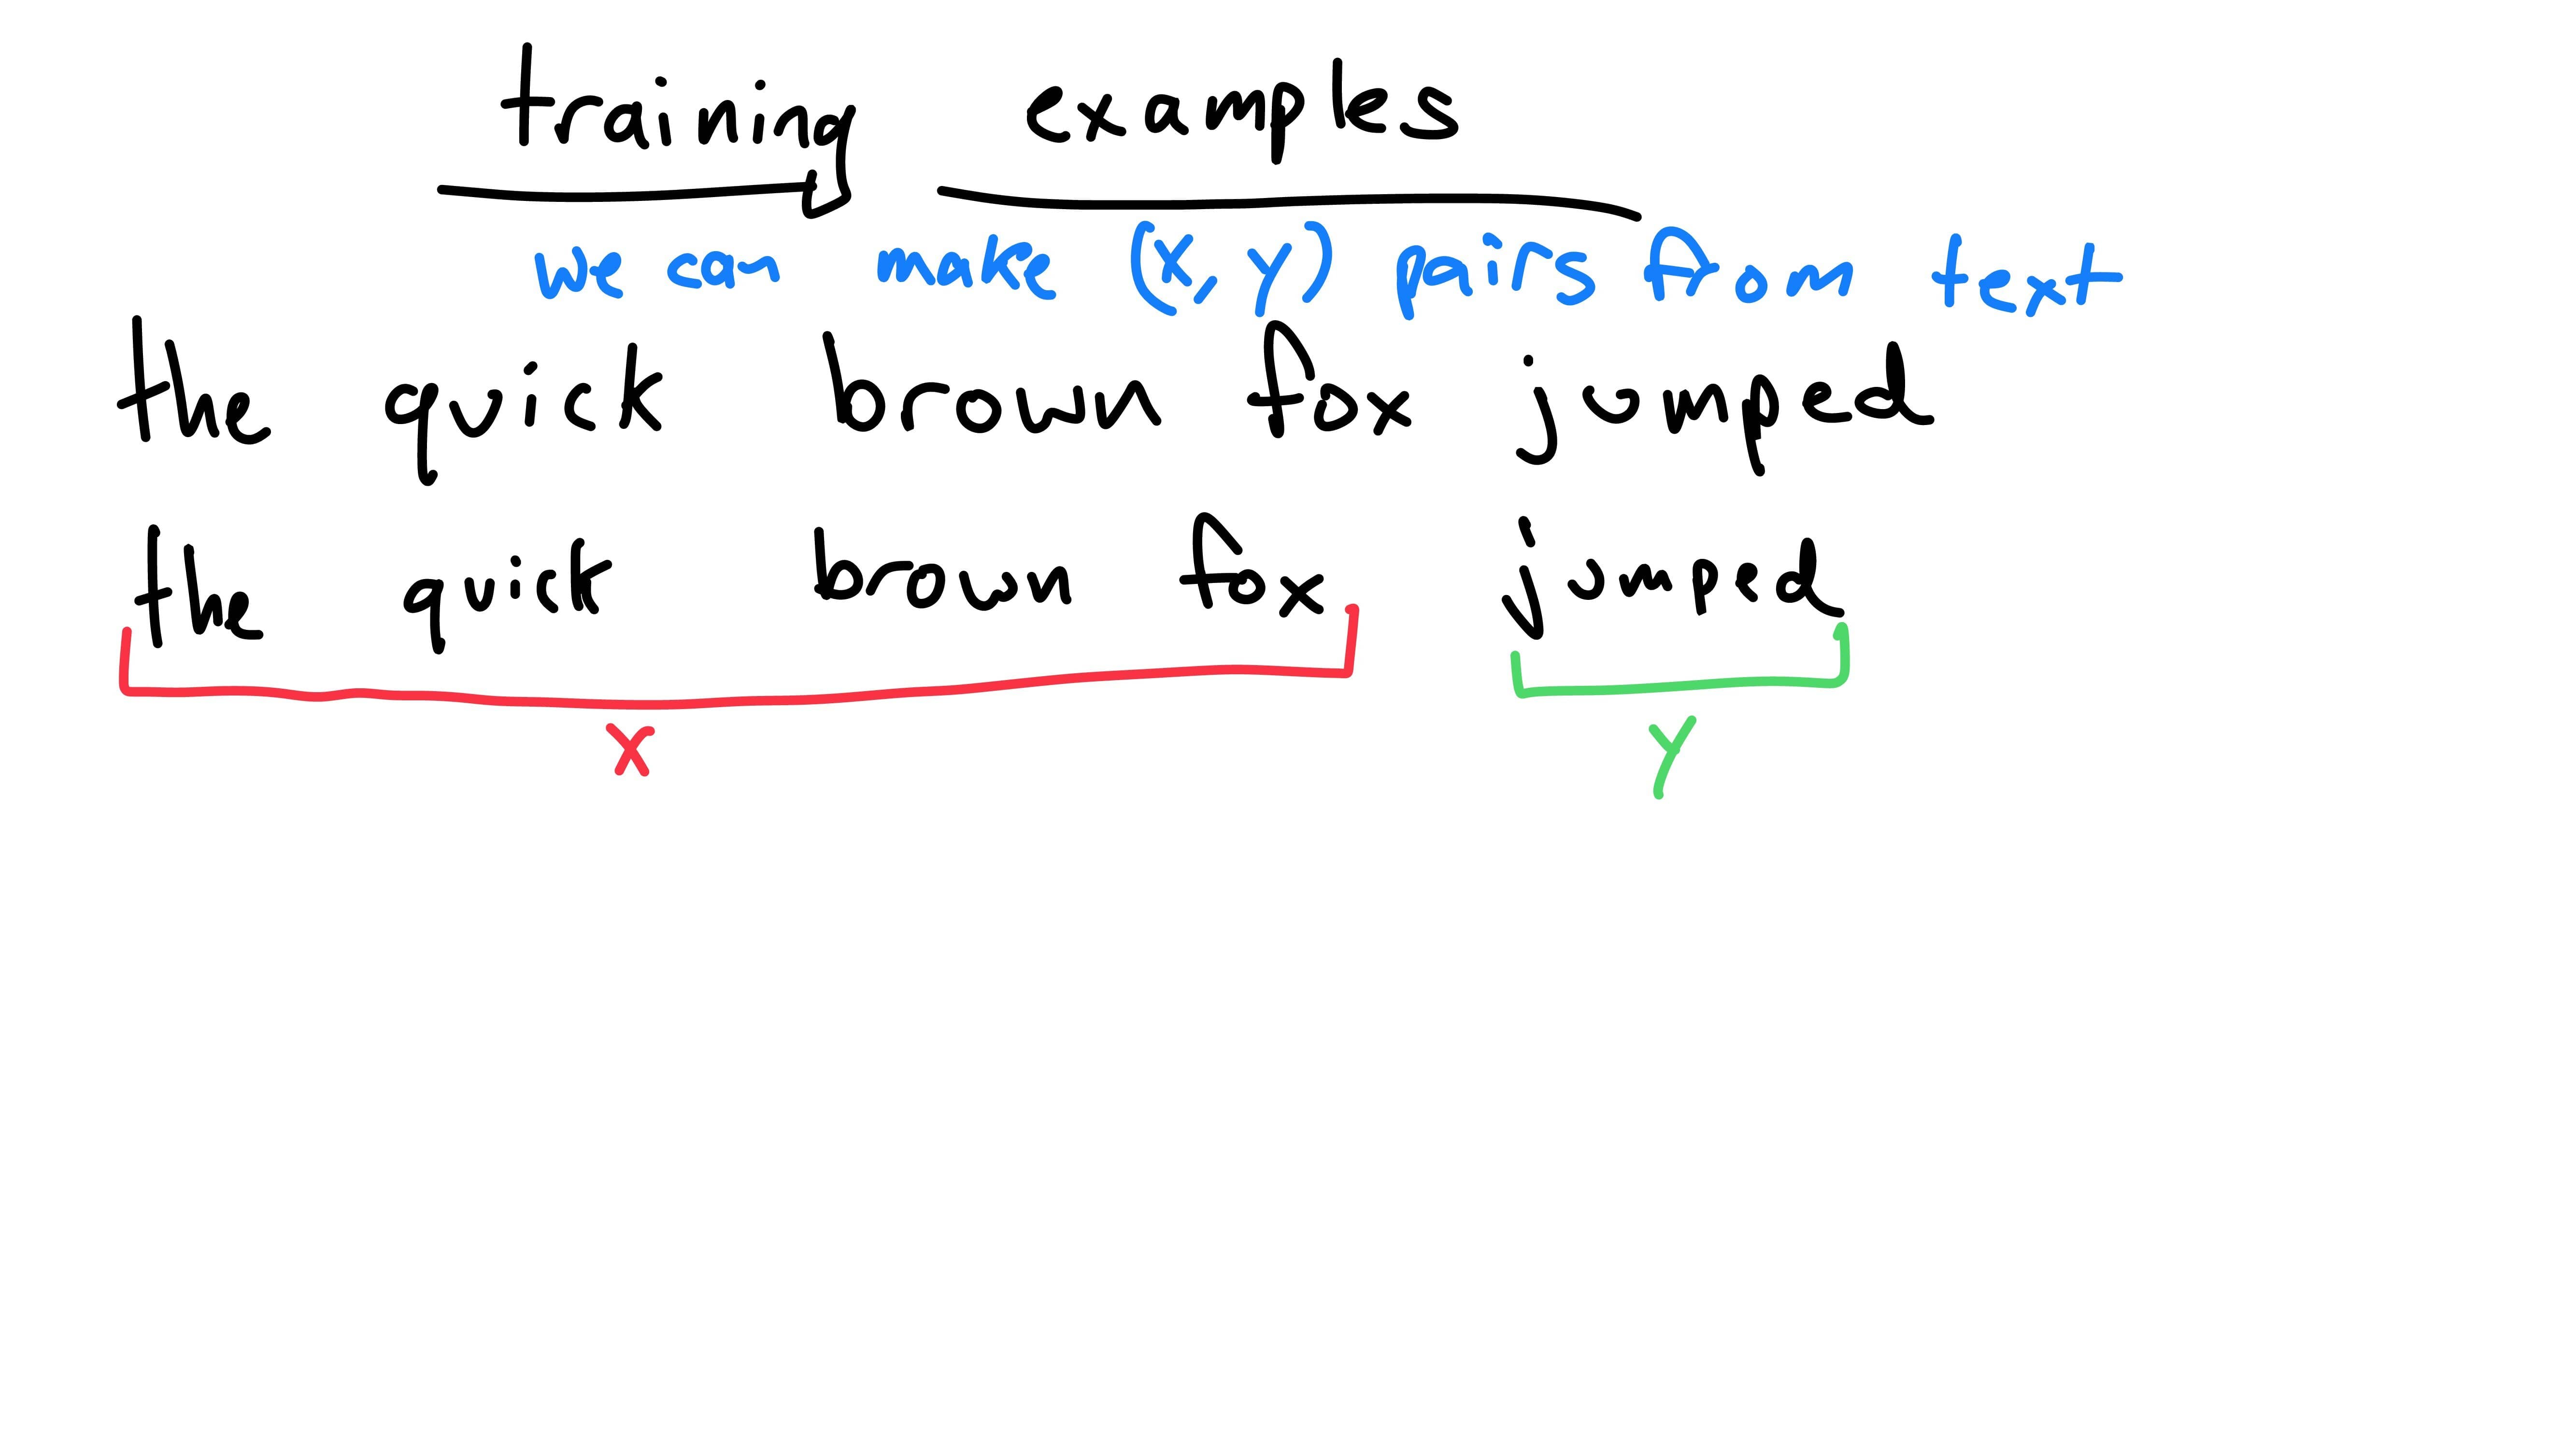 training examples
we can make (X, Y) pairs from text
the quick brown fox jumped
the quick brown fox jumped
X Y